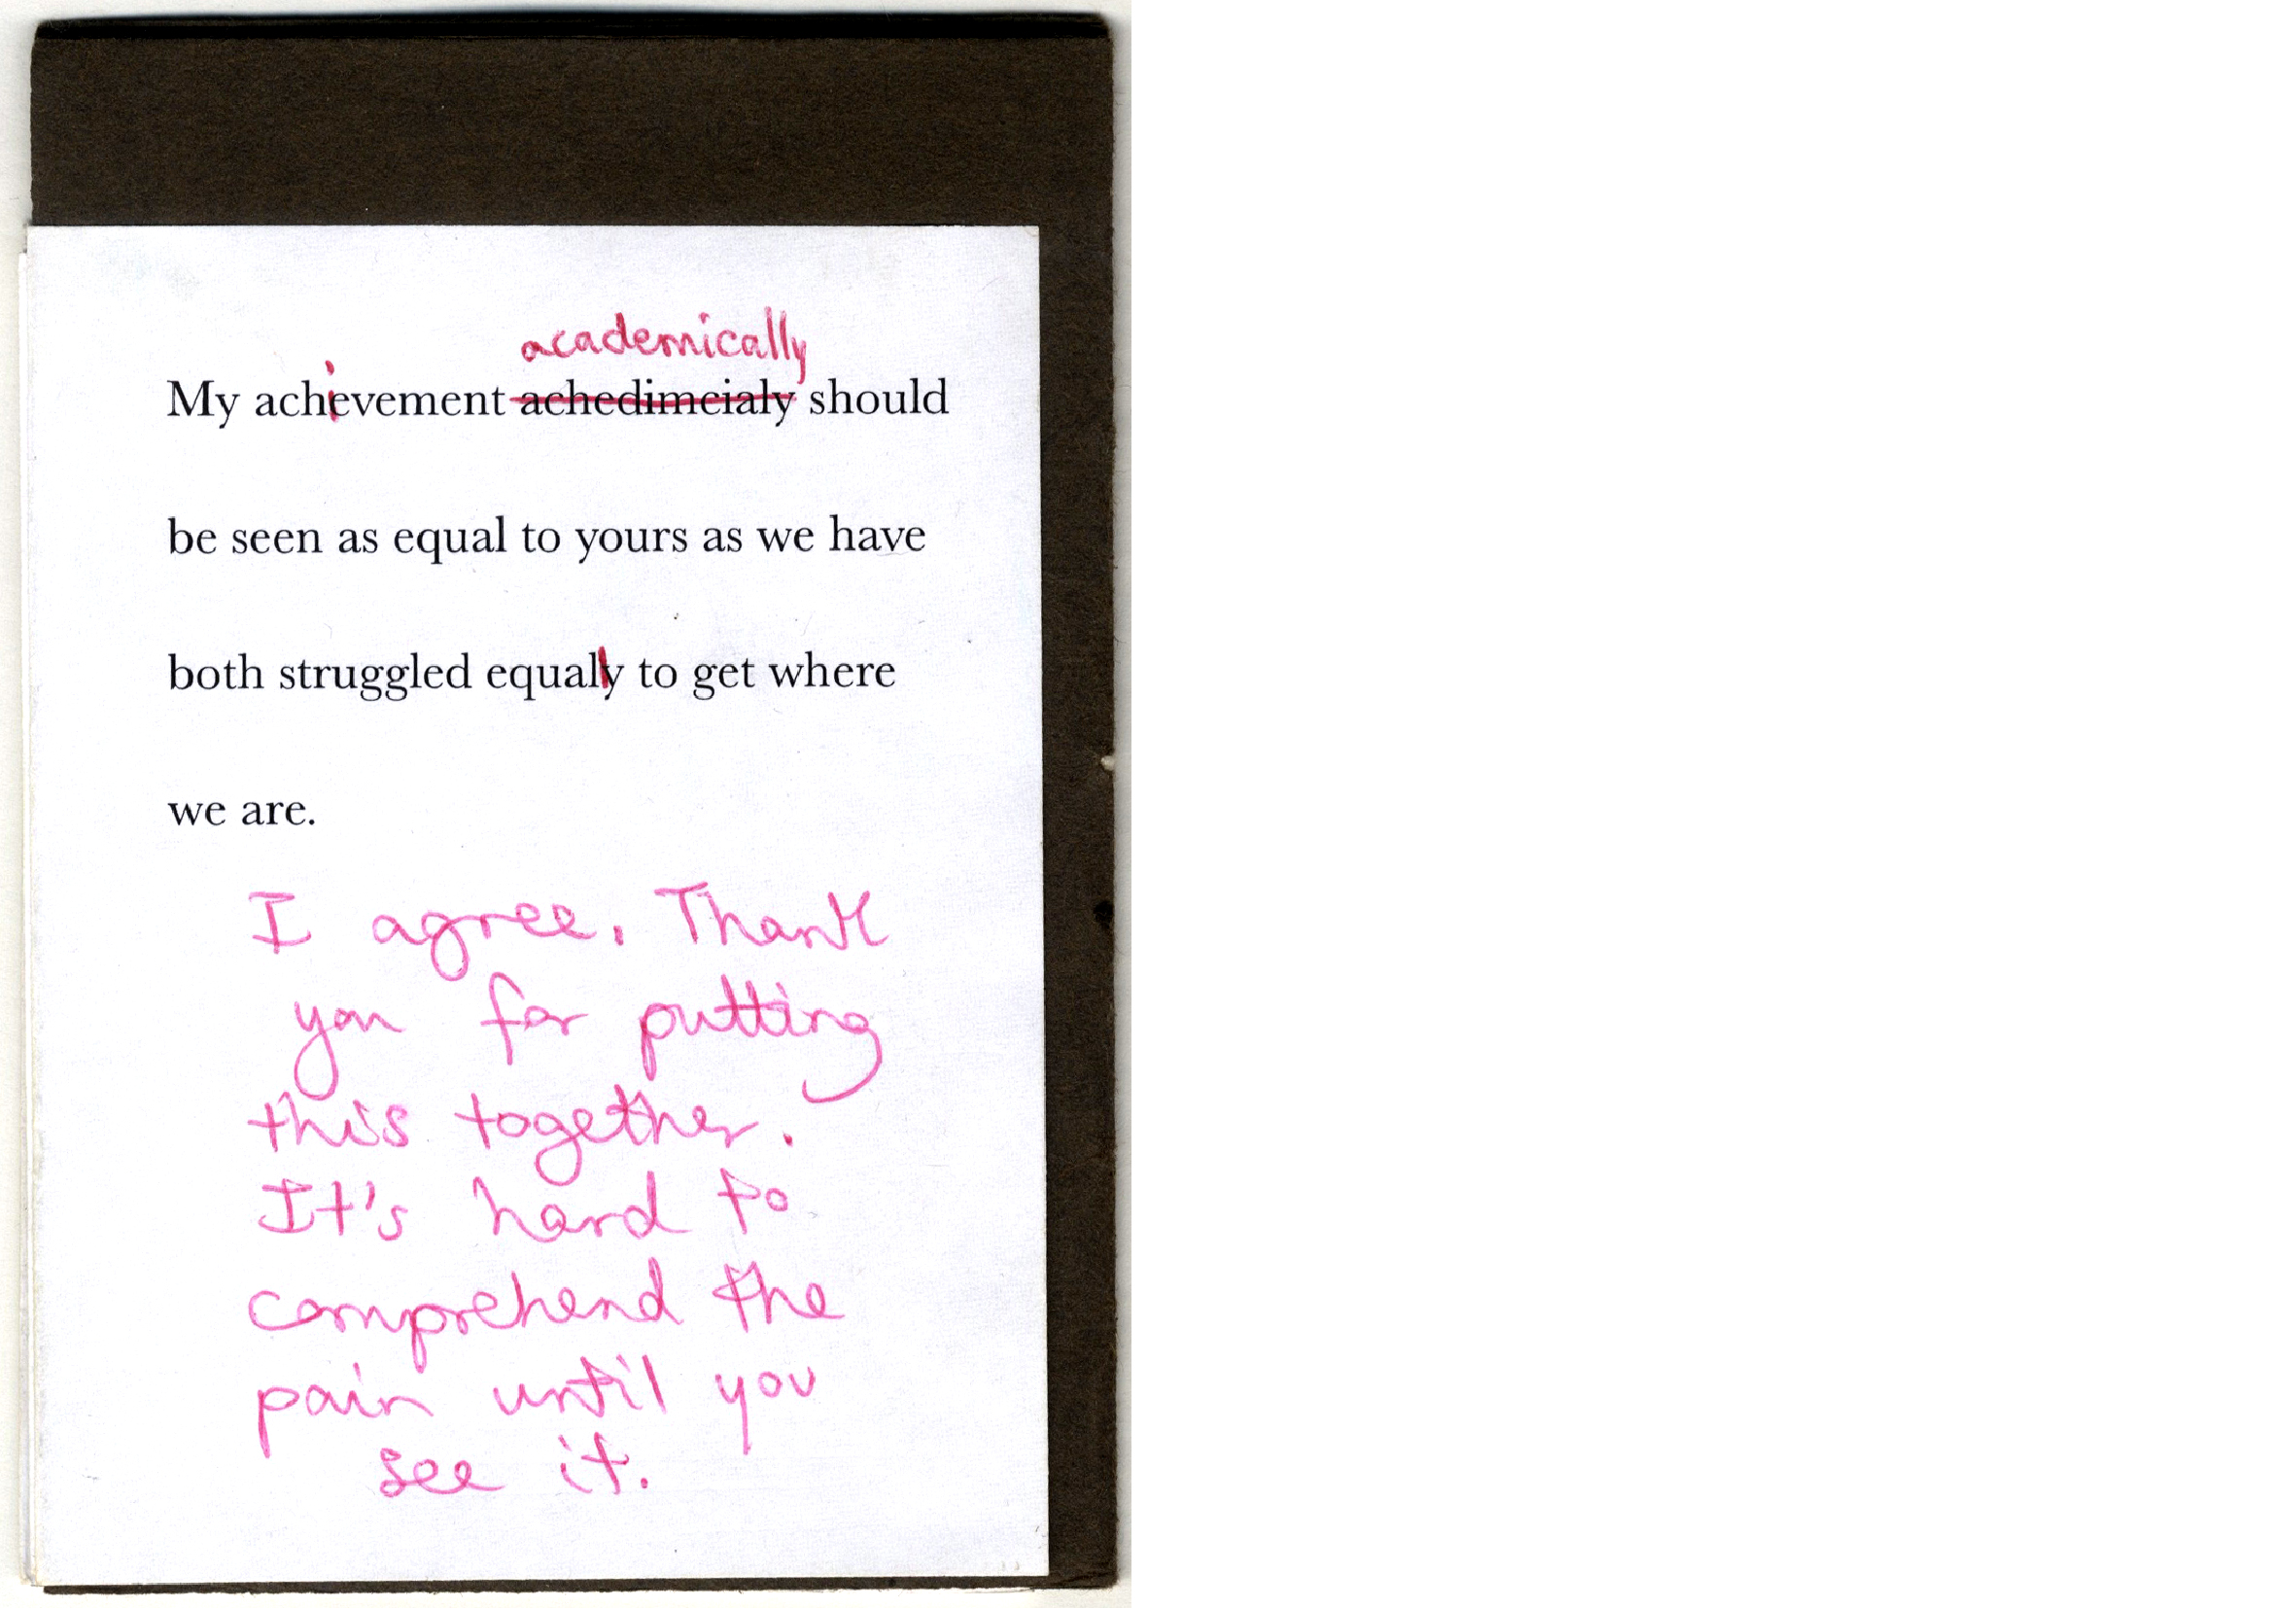 academically
My achievement achedimcialy should
be seen as equal to yours as we have
both struggled equally to get where
we are.
I agree. Thank
you for putting
this together.
It's hard to
comprehend the
pain until you
see it.